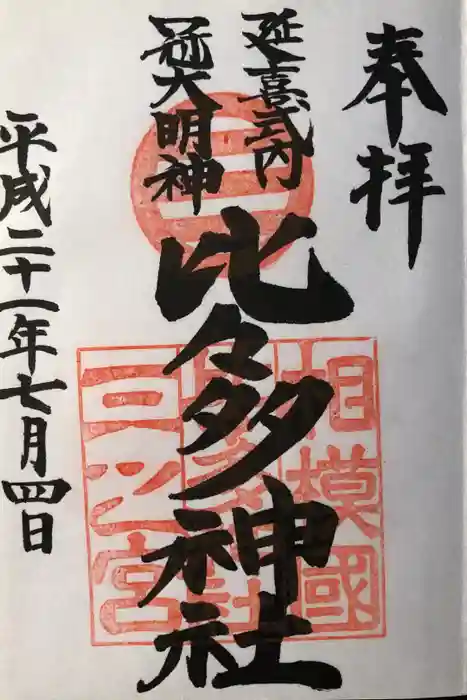 奉拝
延喜式内
冠大明神
比々多神社
平成二十一年七月四日
三
相模國
比々多神社
三之宮